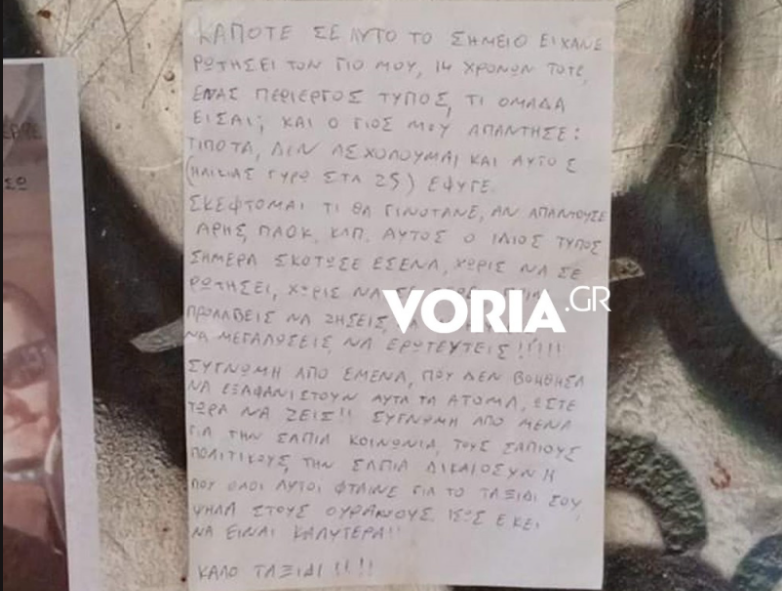 ΚΑΠΟΤΕ ΣΕ ΑΥΤΟ ΤΟ ΣΗΜΕΙΟ ΕΙΧΑΝΕ
ΡΩΤΗΣΕΙ ΤΟΝ ΓΙΟ ΜΟΥ, 14 ΧΡΟΝΩΝ ΤΟΤΕ,
ΕΝΑΣ ΠΕΡΙΕΡΓΟΣ ΤΥΠΟΣ, ΤΙ ΟΜΑΔΑ
ΕΙΣΑΙ; ΚΑΙ Ο ΓΙΟΣ ΜΟΥ ΑΠΑΝΤΗΣΕ:
ΤΙΠΟΤΑ, ΔΕΝ ΑΣΧΟΛΟΥΜΑΙ ΚΑΙ ΑΥΤΟΣ
(ΗΛΙΚΙΑΣ ΓΥΡΩ ΣΤΑ 25) ΕΦΥΓΕ.
ΣΚΕΦΤΟΜΑΙ ΤΙ ΘΑ ΓΙΝΟΤΑΝΕ, ΑΝ ΑΠΑΝΤΟΥΣΕ
ΑΡΗΣ, ΠΑΟΚ, ΚΛΠ. ΑΥΤΟΣ Ο ΙΔΙΟΣ ΤΥΠΟΣ
ΣΗΜΕΡΑ ΣΚΟΤΩΣΕ ΕΣΕΝΑ, ΧΩΡΙΣ ΝΑ ΣΕ
ΡΩΤΗΣΕΙ, ΧΩΡΙΣ ΝΑ
ΠΡΟΛΑΒΕΙΣ ΝΑ ΖΗΣΕΙΣ,
ΝΑ ΜΕΓΑΛΩΣΕΙΣ, ΝΑ ΕΡΩΤΕΥΤΕΙΣ!!!!!
ΣΥΓΝΩΜΗ ΑΠΟ ΕΜΕΝΑ, ΠΟΥ ΔΕΝ ΒΟΗΘΗΣΑ
ΝΑ ΕΞΑΦΑΝΙΣΤΟΥΝ ΑΥΤΑ ΤΑ ΑΤΟΜΑ, ΩΣΤΕ
ΤΩΡΑ ΝΑ ΖΕΙΣ!! ΣΥΓΝΩΜΗ ΑΠΟ ΜΕΝΑ
ΓΙΑ ΤΗΝ ΣΑΠΙΑ ΚΟΙΝΩΝΙΑ, ΤΟΥΣ ΣΑΠΙΟΥΣ
ΠΟΛΙΤΙΚΟΥΣ, ΤΗΝ ΣΑΠΙΑ ΔΙΚΑΙΟΣΥΝΗ
ΠΟΥ ΟΛΟΙ ΑΥΤΟΙ ΦΤΑΙΝΕ ΓΙΑ ΤΟ ΤΑΞΙΔΙ ΣΟΥ
ΨΗΛΑ ΣΤΟΥΣ ΟΥΡΑΝΟΥΣ. ΙΣΩΣ ΕΚΕΙ
ΝΑ ΕΙΝΑΙ ΚΑΛΥΤΕΡΑ!!
ΚΑΛΟ ΤΑΞΙΔΙ!!!!
VORIA.GR